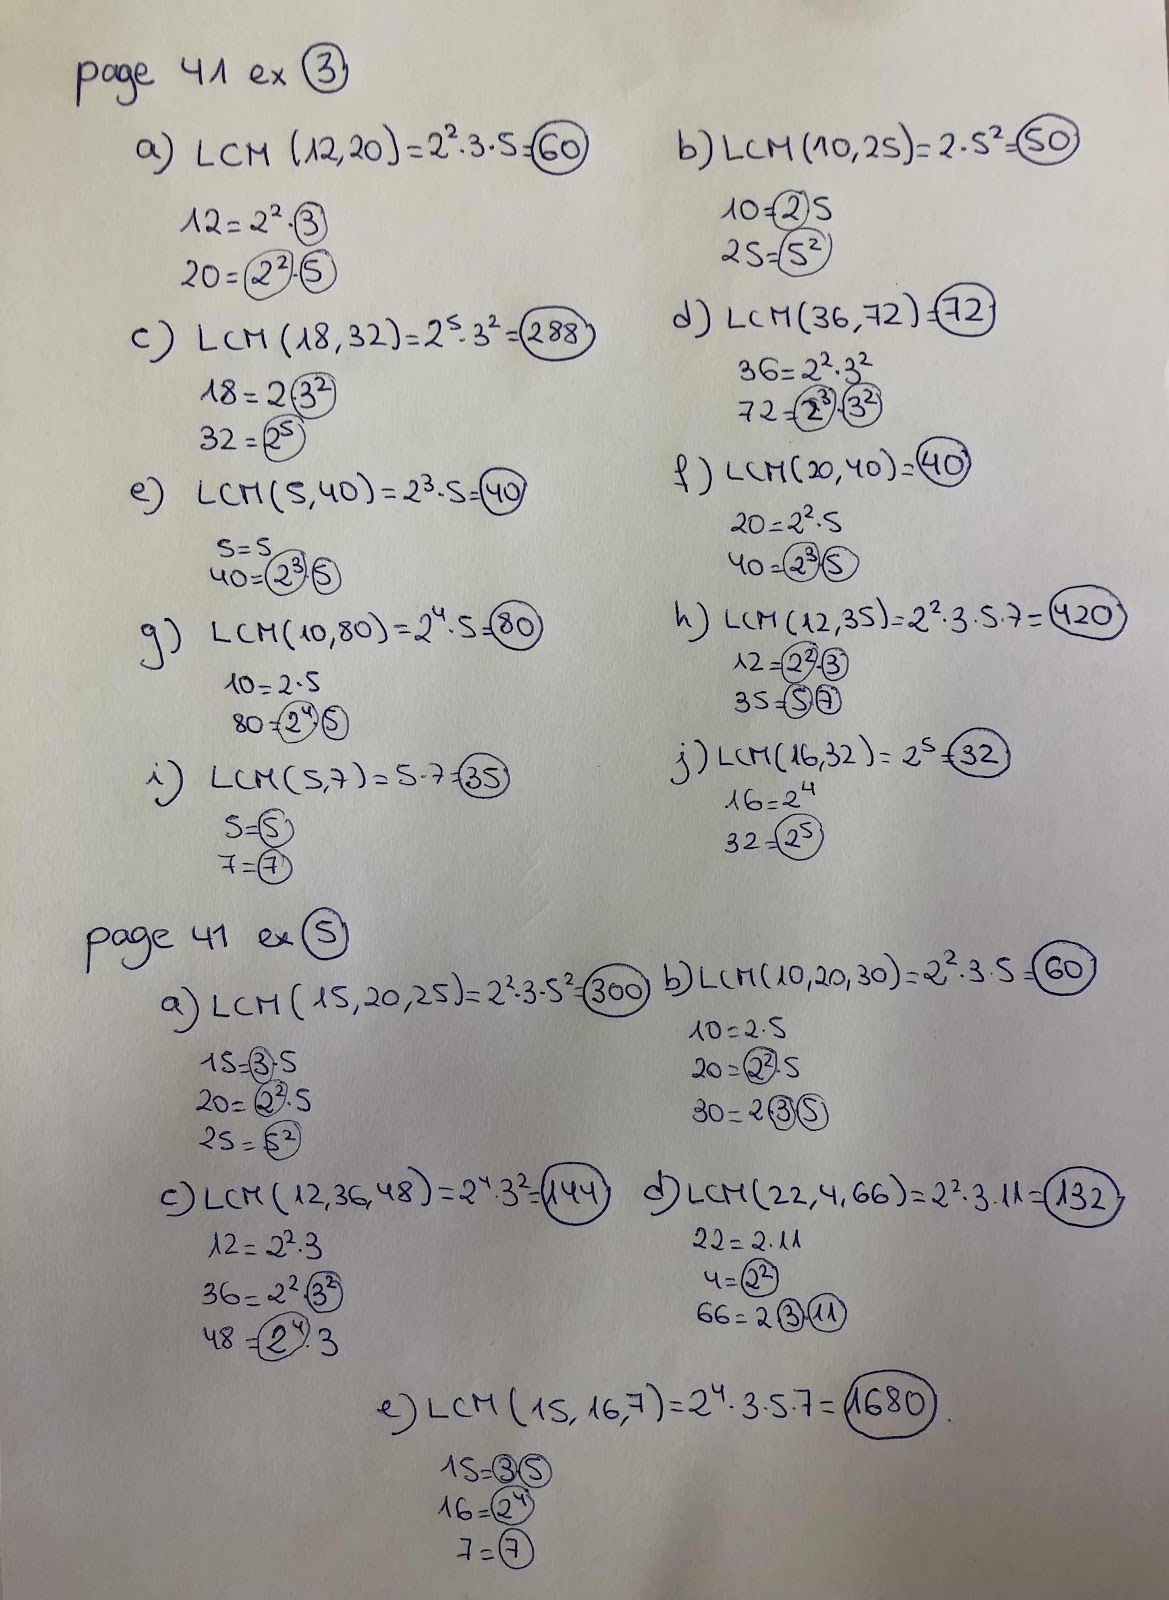 page 41 ex 3
a) LCM (12,20)=2²·3·5=60
12=2²·3
20=2²·5
b) LCM(10,25)=2·5²=50
10=2·5
25=5²
c) LCM(18,32)=2⁵·3²=288
18=2·3²
32=2⁵
d) LCM(36,72)=72
36=2²·3²
72=2³·3²
e) LCM(5,40)=2³·5=40
5=5
40=2³·5
f) LCM(20,40)=40
20=2²·5
40=2³·5
g) LCM(10,80)=2⁴·5=80
10=2·5
80=2⁴·5
h) LCM(12,35)=2²·3·5·7=420
12=2²·3
35=5·7
i) LCM(5,7)=5·7=35
5=5
7=7
j) LCM(16,32)=2⁵=32
16=2⁴
32=2⁵
page 41 ex 5
a) LCM(15,20,25)=2²·3·5²=300
15=3·5
20=2²·5
25=5²
b) LCM(10,20,30)=2²·3·5=60
10=2·5
20=2²·5
30=2·3·5
c) LCM(12,36,48)=2⁴·3²=144
12=2²·3
36=2²·3²
48=2⁴·3
d) LCM(22,4,66)=2²·3·11=132
22=2·11
4=2²
66=2·3·11
e) LCM(15,16,7)=2⁴·3·5·7=1680.
15=3·5
16=2⁴
7=7